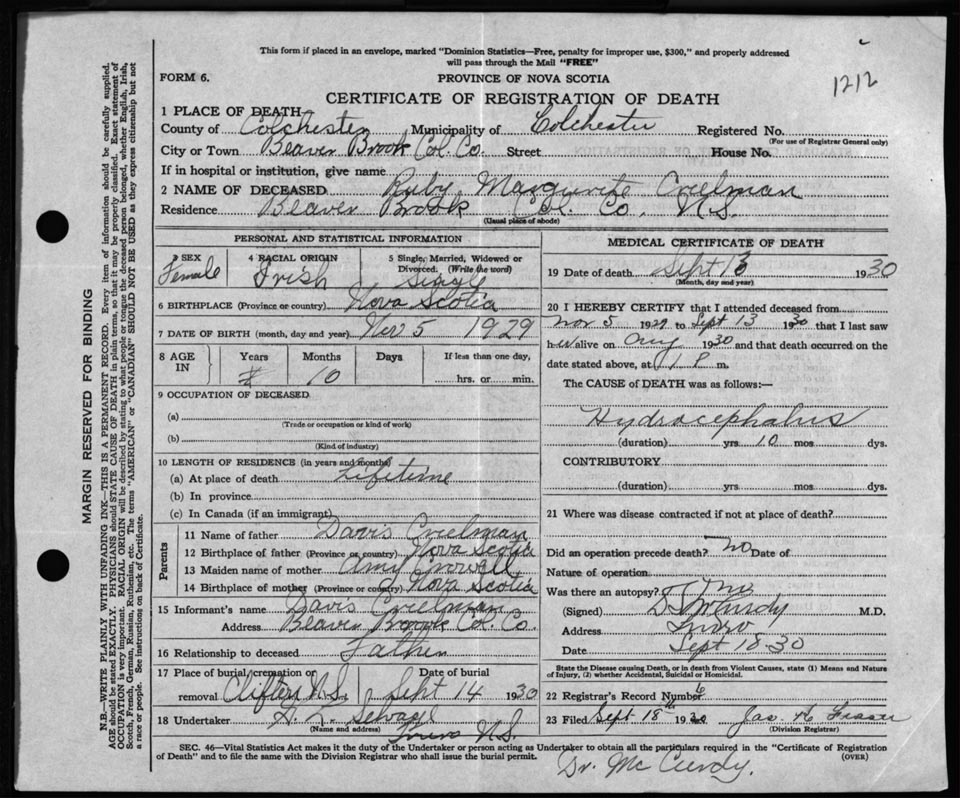 This form if placed in an envelope, marked "Dominion Statistics—Free, penalty for improper use, $300," and properly addressed
will pass through the Mail "FREE"
FORM 6.
PROVINCE OF NOVA SCOTIA
1212
CERTIFICATE OF REGISTRATION OF DEATH
1 PLACE OF DEATH
County of Colchester Municipality of Colchester Registered No.
(For use of Registrar General only)
City or Town Beaver Brook Col. Co. Street House No.
If in hospital or institution, give name
2 NAME OF DECEASED Ruby Marguerite Creelman
Residence Beaver Brook Col. Co. N.S.
(Usual place of abode)
PERSONAL AND STATISTICAL INFORMATION
3 SEX Female
4 RACIAL ORIGIN Irish
5 Single, Married, Widowed or
Divorced. (Write the word)
Single
6 BIRTHPLACE (Province or country) Nova Scotia
7 DATE OF BIRTH (month, day and year) Nov 5 1929
8 AGE IN Years Months Days If less than one day,
10 hrs. or min.
9 OCCUPATION OF DECEASED
(a)
(Trade or occupation or kind of work)
(b)
(Kind of industry)
10 LENGTH OF RESIDENCE (in years and months)
(a) At place of death Lifetime
(b) In province
(c) In Canada (if an immigrant)
Parents
11 Name of father Davis Creelman
12 Birthplace of father (Province or country) Nova Scotia
13 Maiden name of mother Amy Crowell
14 Birthplace of mother (Province or country) Nova Scotia
15 Informant's name Davis Creelman
Address Beaver Brook Col. Co.
16 Relationship to deceased Father
17 Place of burial, cremation or Date of burial
removal Clifton N.S. Sept 14 1930
18 Undertaker
(Name and address) Truro N.S.
MEDICAL CERTIFICATE OF DEATH
19 Date of death Sept 13 1930
(Month, day and year)
20 I HEREBY CERTIFY that I attended deceased from
Nov 5 1929 to Sept 13 1930 that I last saw
her alive on Aug 1930 and that death occurred on the
date stated above, at 1 P m.
The CAUSE OF DEATH was as follows:—
Hydrocephalus
(duration) yrs 10 mos dys.
CONTRIBUTORY
(duration) yrs mos dys.
21 Where was disease contracted if not at place of death?
Did an operation precede death? No Date of
Nature of operation
Was there an autopsy? no
(Signed) McCurdy M.D.
Address Truro
Date Sept 18-30
State the Disease causing Death, or in death from Violent Causes, state (1) Means and Nature
of Injury, (2) whether Accidental, Suicidal or Homicidal.
22 Registrar's Record Number 6
23 Filed Sept 18th 1930 Jas. H. Fraser
(Division Registrar)
SEC. 46—Vital Statistics Act makes it the duty of the Undertaker or person acting as Undertaker to obtain all the particulars required in the "Certificate of Registration
of Death" and to file the same with the Division Registrar who shall issue the burial permit. (OVER)
Dr. McCurdy.
MARGIN RESERVED FOR BINDING
N.B.—WRITE PLAINLY WITH UNFADING INK—THIS IS A PERMANENT RECORD. Every item of information should be carefully supplied.
AGE should be stated EXACTLY. PHYSICIANS should STATE CAUSE OF DEATH in plain terms, so that it may be properly classified. Exact statement of
OCCUPATION is very important. RACIAL ORIGIN will be described by stating to what people or tongue the deceased person belonged, whether English, Irish,
Scotch, French, German, Russian, Ruthenian, etc. The terms "AMERICAN" or "CANADIAN" SHOULD NOT BE USED as they express citizenship but not
a race or people. See instructions on back of Certificate.